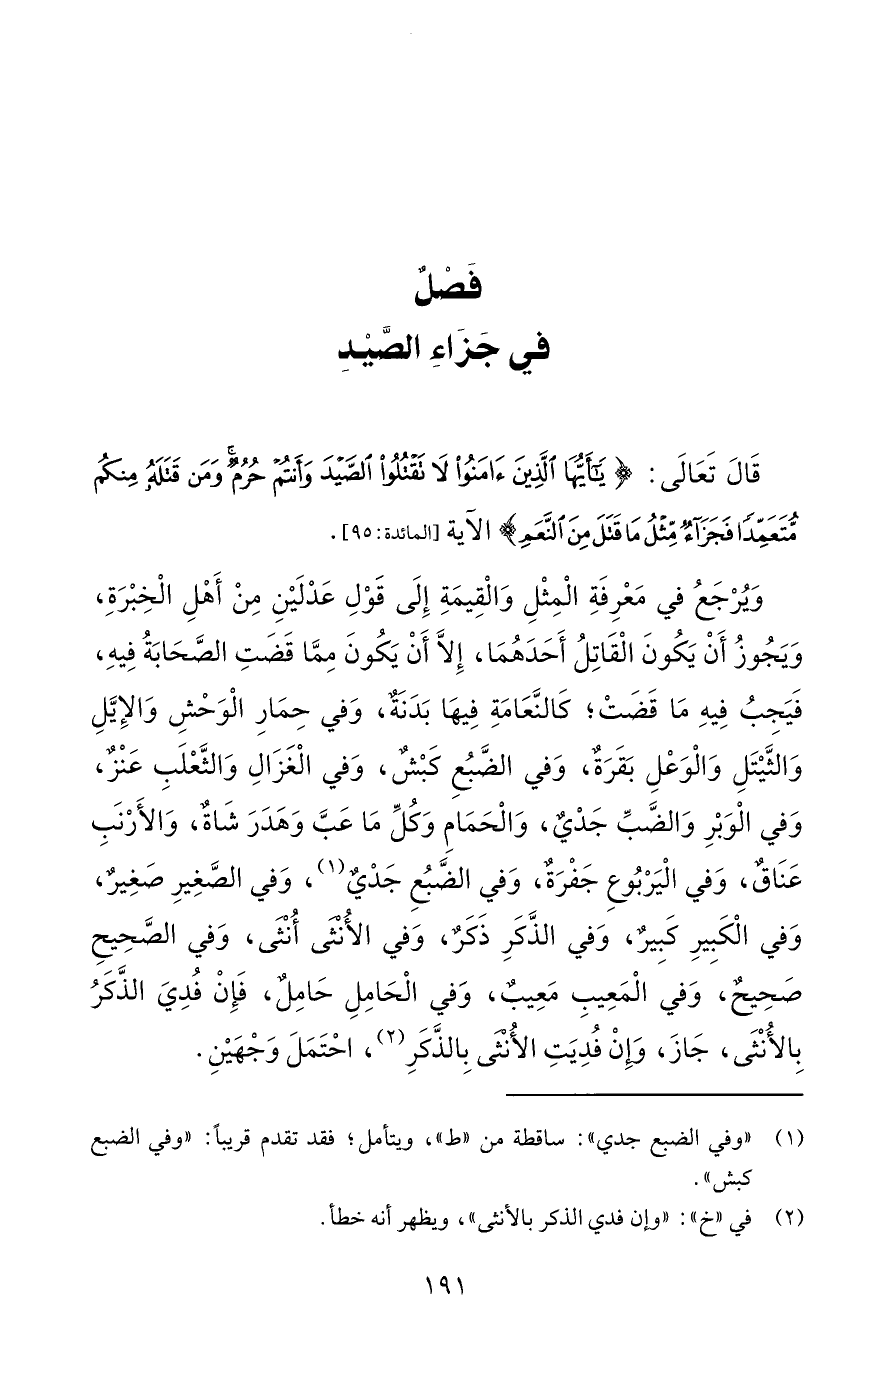 فَصْلٌ
في جَزَاءِ الصَّيْدِ
قَالَ تَعَالَى: ﴿يَٰٓأَيُّهَا ٱلَّذِينَ ءَامَنُوا۟ لَا تَقْتُلُوا۟ ٱلصَّيْدَ وَأَنتُمْ حُرُمٌۚ وَمَن قَتَلَهُۥ مِنكُم
مُّتَعَمِّدًا فَجَزَآءٌ مِّثْلُ مَا قَتَلَ مِنَ ٱلنَّعَمِ﴾ الآية [المائدة: ٩٥].
وَيُرْجَعُ في مَعْرِفَةِ الْمِثْلِ وَالْقِيمَةِ إِلَى قَوْلِ عَدْلَيْنِ مِنْ أَهْلِ الْخِبْرَةِ،
وَيَجُوزُ أَنْ يَكُونَ الْقَاتِلُ أَحَدَهُمَا، إِلاَّ أَنْ يَكُونَ مِمَّا قَضَتِ الصَّحَابَةُ فِيهِ،
فَيَجِبُ فِيهِ مَا قَضَتْ؛ كَالنَّعَامَةِ فِيهَا بَدَنَةٌ، وَفي حِمَارِ الْوَحْشِ وَالإِيَّلِ
وَالثَّيْتَلِ وَالْوَعْلِ بَقَرَةٌ، وَفي الضَّبُعِ كَبْشٌ، وَفي الْغَزَالِ وَالثَّعْلَبِ عَنْزٌ،
وَفي الْوَبْرِ وَالضَّبِّ جَدْيٌ، وَالْحَمَامِ وَكُلِّ مَا عَبَّ وَهَدَرَ شَاةٌ، وَالأَرْنَبِ
عَنَاقٌ، وَفي الْيَرْبُوعِ جَفْرَةٌ، وَفي الضَّبُعِ جَدْيٌ(١)، وَفي الصَّغِيرِ صَغِيرٌ،
وَفي الْكَبِيرِ كَبِيرٌ، وَفي الذَّكَرِ ذَكَرٌ، وَفي الأُنْثَى أُنْثَى، وَفي الصَّحِيحِ
صَحِيحٌ، وَفي الْمَعِيبِ مَعِيبٌ، وَفي الْحَامِلِ حَامِلٌ، فَإِنْ فُدِيَ الذَّكَرُ
بِالأُنْثَى، جَازَ، وَإِنْ فُدِيَتِ الأُنْثَى بِالذَّكَرِ(٢)، احْتَمَلَ وَجْهَيْنِ.
(١) «وفي الضبع جدي»: ساقطة من «ط»، ويتأمل؛ فقد تقدم قريباً: «وفي الضبع
كبش».
(٢) في «خ»: «وإن فدي الذكر بالأنثى»، ويظهر أنه خطأ.
١٩١